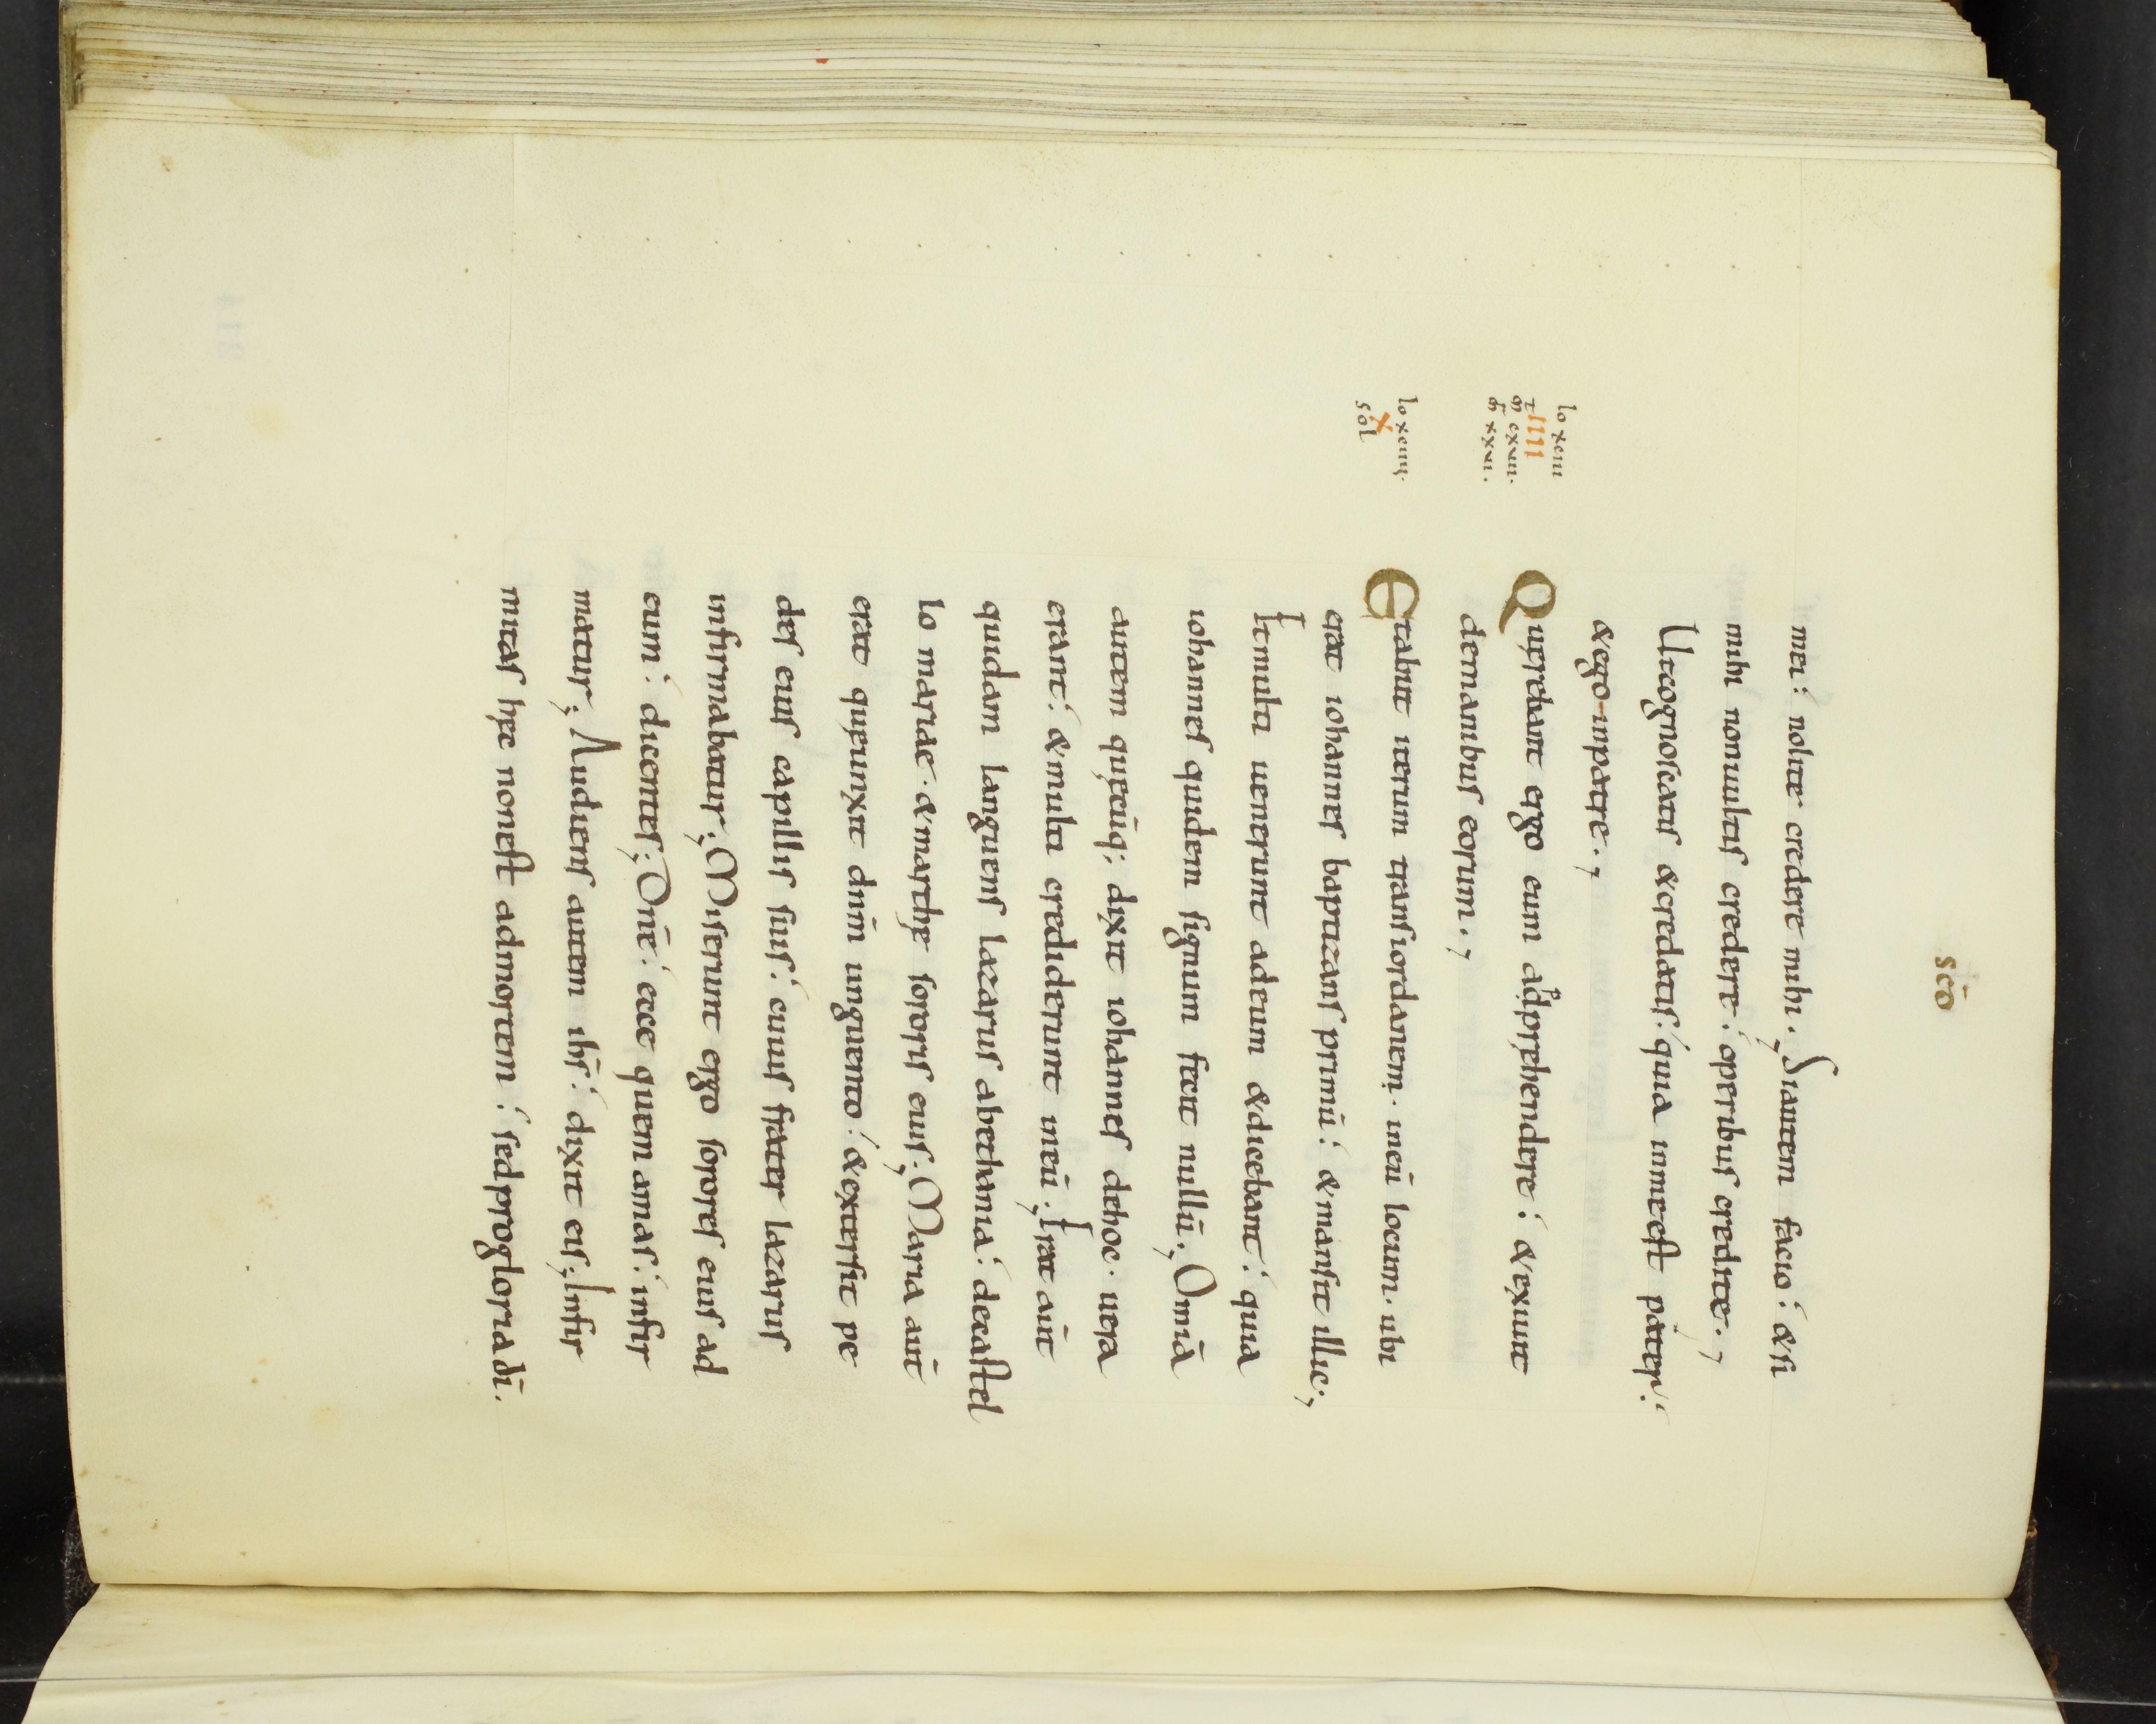 scō
mei: nolite credere mihi. Siautem facio: &si
mihi nonuultis credere: operibus credite.,
Utcognoscatis &credatis: quia inmeest pater:
&ego inpatre.,
lo xciii
IIII
mt cxxiii.
lc xxxii.
Quęrebant ergo eum adpręhendere: &exiuit
demanibus eorum.,
lo xciiij.
X
sol
Etabiit iterum transiordanem. ineū locum. ubi
erat iohannes baptizans primū: &mansit illic.,
Etmulti uenerunt adeum &dicebant: quia
iohannes quidem signum fecit nullū., Omia
autem quęcūq; dixit iohannes dehoc. uera
erant: &multi crediderunt ineū., Erat aūt
quidam languens lazarus abethania: decastel
lo mariae. &marthę sororis eius., Maria aūt
erat quęunxit dnm̄ unguento: &extersit pe
des eius capillis suis: cuius frater lazarus
infirmabatur., Miserunt ergo sorores eius ad
eum: dicentes., Dnē. ecce quem amas: infir
matur., Audiens autem ihs̄: dixit eis., Infir
mitas hęc nonest admortem: sedprogloria dī.